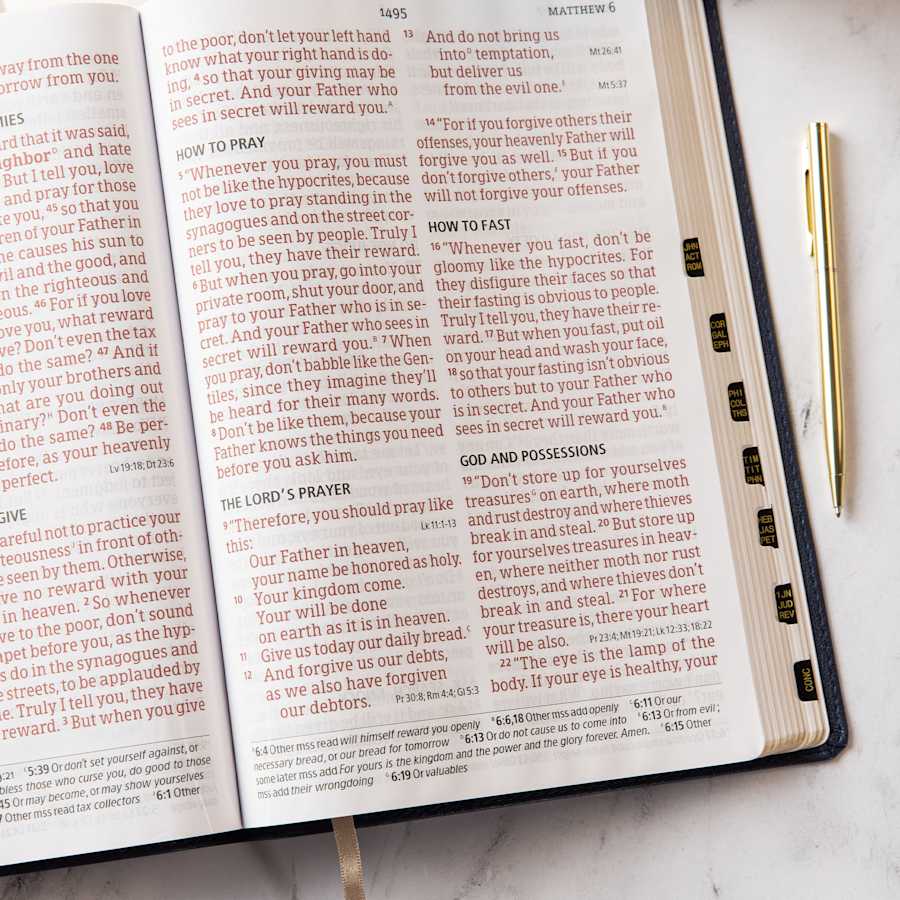 way from the one
orrow from you.
MIES
ard that it was said,
ighbor and hate
But I tell you, love
and pray for those
te you, 45 so that you
ren of your Father in
he causes his sun to
vil and the good, and
n the righteous and
eous. 46 For if you love
ove you, what reward
ve? Don't even the tax
do the same? 47 And if
only your brothers and
hat are you doing out
inary?" Don't even the
do the same? 48 Be per-
efore, as your heavenly
perfect. Lv 19:18; Dt 23:6
GIVE
areful not to practice your
teousness in front of oth-
e seen by them. Otherwise,
ve no reward with your
in heaven. 2 So whenever
ve to the poor, don't sound
mpet before you, as the hyp-
s do in the synagogues and
e streets, to be applauded by
le. Truly I tell you, they have
reward. 3 But when you give
:21 5:39 Or don't set yourself against, or
bless those who curse you, do good to those
45 Or may become, or may show yourselves
7 Other mss read tax collectors 6:1 Other
1495
MATTHEW 6
to the poor, don't let your left hand
know what your right hand is do-
ing, 4 so that your giving may be
in secret. And your Father who
sees in secret will reward you.A
HOW TO PRAY
5 "Whenever you pray, you must
not be like the hypocrites, because
they love to pray standing in the
synagogues and on the street cor-
ners to be seen by people. Truly I
tell you, they have their reward.
6 But when you pray, go into your
private room, shut your door, and
pray to your Father who is in se-
cret. And your Father who sees in
secret will reward you.B 7 When
you pray, don't babble like the Gen-
tiles, since they imagine they'll
be heard for their many words.
8 Don't be like them, because your
Father knows the things you need
before you ask him.
THE LORD'S PRAYER
9 "Therefore, you should pray like
this: Lk 11:1-13
Our Father in heaven,
your name be honored as holy.
10 Your kingdom come.
Your will be done
on earth as it is in heaven.
11 Give us today our daily bread.C
12 And forgive us our debts,
as we also have forgiven
our debtors. Pr 30:8; Rm 4:4; Gi 5:3
13 And do not bring us
into temptation, Mt 26:41
but deliver us
from the evil one. Mt 5:37
14 "For if you forgive others their
offenses, your heavenly Father will
forgive you as well. 15 But if you
don't forgive others, your Father
will not forgive your offenses.
HOW TO FAST
16 "Whenever you fast, don't be
gloomy like the hypocrites. For
they disfigure their faces so that
their fasting is obvious to people.
Truly I tell you, they have their re-
ward. 17 But when you fast, put oil
on your head and wash your face,
18 so that your fasting isn't obvious
to others but to your Father who
is in secret. And your Father who
sees in secret will reward you.B
GOD AND POSSESSIONS
19 "Don't store up for yourselves
treasuresG on earth, where moth
and rust destroy and where thieves
break in and steal. 20 But store up
for yourselves treasures in heav-
en, where neither moth nor rust
destroys, and where thieves don't
break in and steal. 21 For where
your treasure is, there your heart
will be also. Pr 23:4; Mt 19:21; Lk 12:33; 18:22
22 "The eye is the lamp of the
body. If your eye is healthy, your
6:4 Other mss read will himself reward you openly 6:6,18 Other mss add openly 6:11 Or our
necessary bread, or our bread for tomorrow 6:13 Or do not cause us to come into 6:13 Or from evil;
some later mss add For yours is the kingdom and the power and the glory forever. Amen. 6:15 Other
mss add their wrongdoing 6:19 Or valuables
JHN
ACT
ROM
COR
GAL
EPH
PHI
COL
THS
TIM
TIT
PHN
HEB
JAS
PET
1JN
JUD
REV
CONC